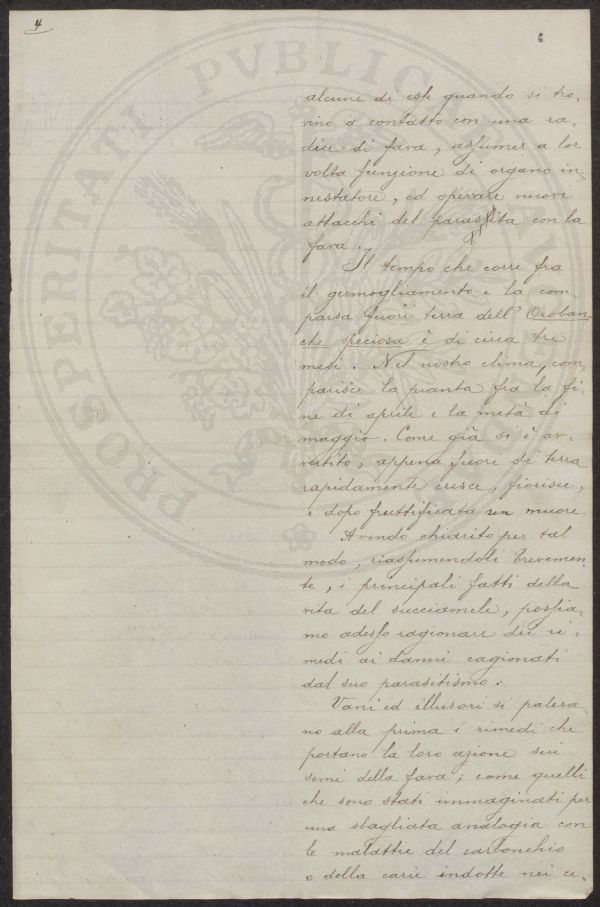 4
alcune di esse quando si tro-
vino a contatto con una ra-
dice di fava, assumer a lor
volta funzione di organo in-
nestatore, ed operare nuovi
attacchi del parassita con la
fava.
Il tempo che corre fra
il germogliamento e la com-
parsa fuori terra dell' Oroban-
che speciosa è di circa tre
mesi. Nel nostro clima, com-
parisce la pianta fra la fi-
ne di aprile e la metà di
maggio. Come già si è av-
vertito, appena fuori di terra
rapidamente cresce, fiorisce,
e dopo fruttificata sen muore.
Avendo chiarito per tal
modo, riassumendoli brevemen-
te, i principali fatti della
vita del succiamele, possia-
mo adesso ragionare dei ri-
medi ai danni cagionati
dal suo parasitismo.
Vani ed illusori si palesa-
no alla prima i rimedi che
portano la loro azione sui
semi della fava; come quelli
che sono stati immaginati per
una sbagliata analogia con
le malattie del carbonchio
o della carie indotte nei ce-
PROSPERITATI PVBLICAE